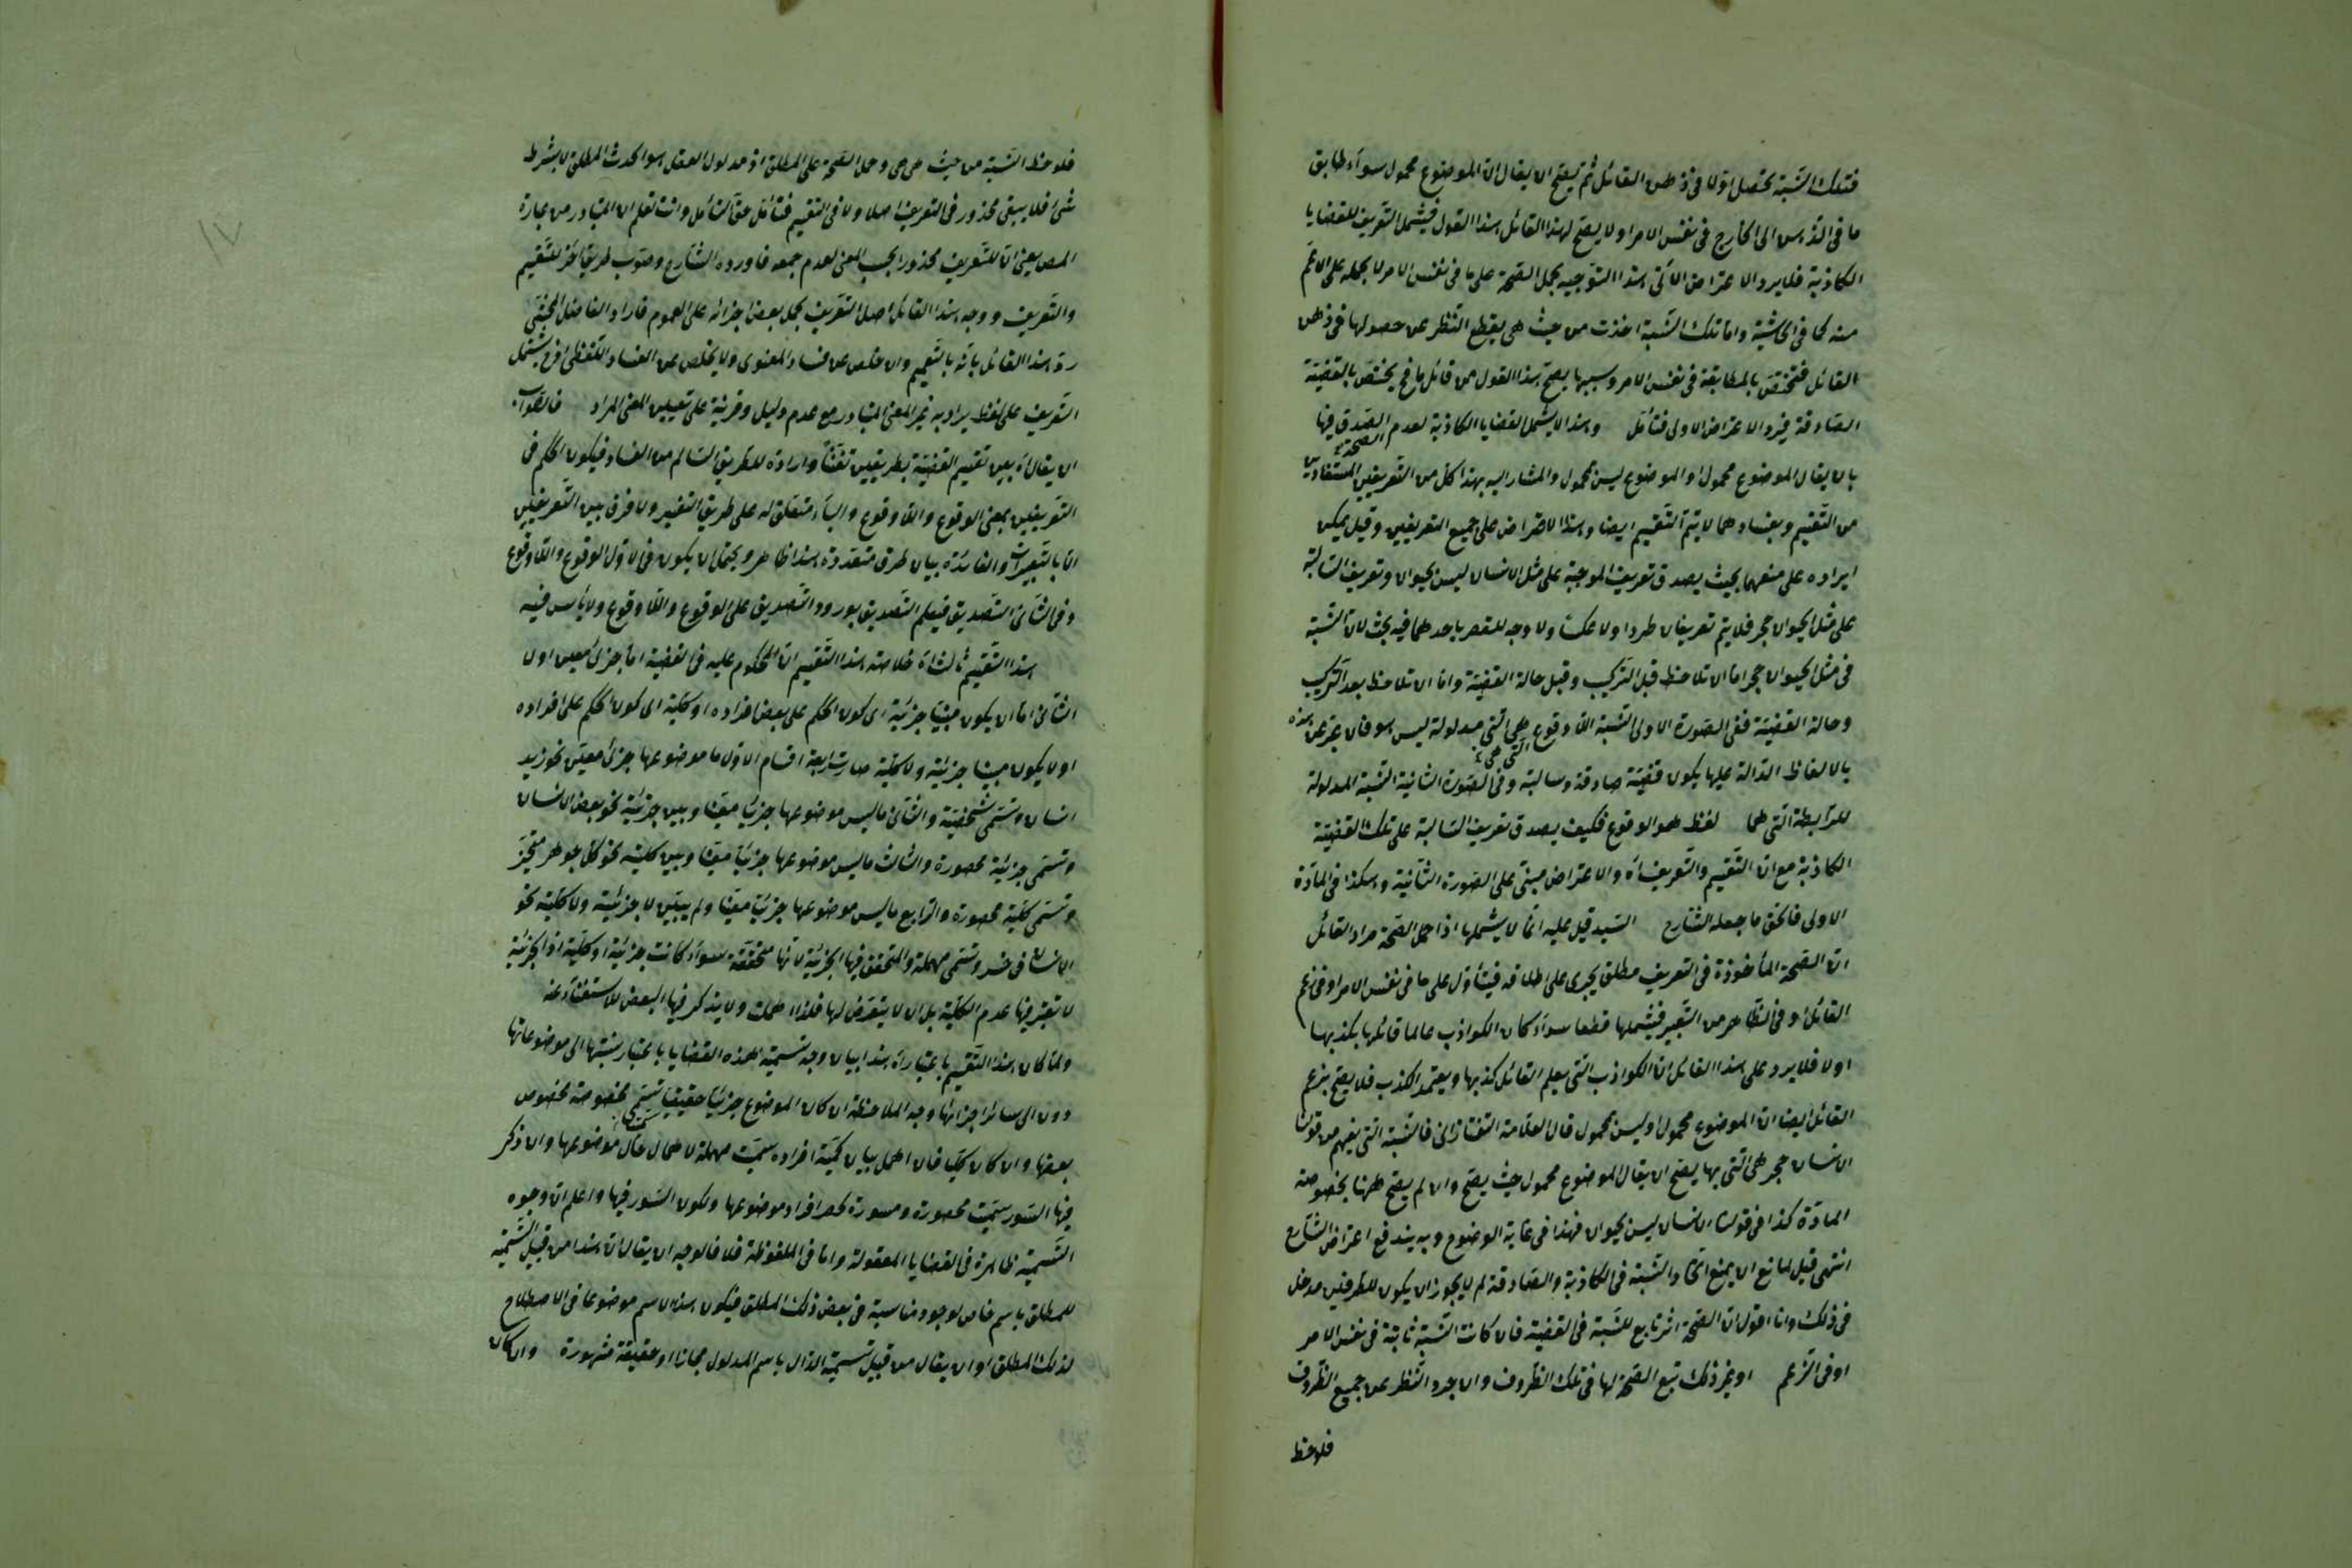 فتلك النسبة تحصل اولا في ذهن القائل ثم يصح ان يقال ان الموضوع محمول سواء طابق
ما في الذهن الى الخارج في نفس الامر او لا يصح لهذا القائل هذا القول فيشمل التعريف للقضايا
الكاذبة فلا يرد الاعتراض الآتي هذا التوجيه بحمل الصحة على ما في نفس الامر لا بحمله على الاعم
منه كما في الحاشية واما تلك النسبة اخذت من حيث هي بقطع النظر عن حصولها في ذهن
القائل فتختص بالمطابقة في نفس الامر وبسببها يصح هذا القول من قائل ما فح يختص بالقضية
الصادقة فيرد الاعتراض الاولى فتأمل وهذا لا يشمل القضايا الكاذبة لعدم الصدق فيها
بان يقال الموضوع محمول او الموضوع ليس بمحمول والمشار اليه بهذا كل من التعريفين المستفادين
من التقسيم وبفسادهما لا يتم التقسيم ايضا وهذا الاعتراض على جميع التعريفين وقيل يمكن
ايراده على منعهما بحيث يصدق تعريف الموجبة على مثل الانسان ليس بحيوان وتعريف السالبة
على مثل الحيوان حجر فلا يتم تعريفان طردا ولا عكسا ولا وجه للقصر باحدهما فيه بحث لان النسبة
في مثل الحيوان حجر اما ان تلاحظ قبل التركيب وقبل حالة القضية واما ان تلاحظ بعد التركيب
وحالة القضية ففي الصورة الاولى النسبة اللاوقوع هي التي مدلولة ليس هو فان عبر عن هذه
بالالفاظ الدالة عليها يكون قضية صادقة وسالبة وفي الصورة الثانية النسبة المدلولة
للرابطة التي هما لفظ هو الوقوع فكيف يصدق تعريف السالبة على تلك القضية
الكاذبة مع ان التقسيم والتعريف اه والاعتراض مبني على الصورة الثانية وهكذا في المادة
الاولى فالحق ما جعله الشارح السيد قيل عليه انما لا يشملها اذا حمل الصحة مراد القائل
ان الصحة المأخوذة في التعريف مطلق يجرى على اطلاقه فيتأول على ما في نفس الامر او في زعم
القائل او في الظاهر من التعبير فيشملها قطعا سواء كان الكواذب عالما قائلها بكذبها
او لا فلا يرد على هذا القائل ان الكواذب التي يعلم القائل كذبها ويعتمد الكذب فلا يصح بزعم
القائل ايضا ان الموضوع محمول او ليس بمحمول قال العلامة التفتازاني فالنسبة التي يفهم من قولنا
الانسان حجر هي التي بها يصح ان يقال الموضوع محمول حيث يصح وان لم يصح ههنا بخصوصة
المادة كذا في قولنا الانسان ليس بحيوان فهذا في غاية الوضوح وبه يندفع اعتراض الشارح
انتهى قيل لمانع ان يمنع اتحاد النسبة في الكاذبة والصادقة لم لا يجوز ان يكون للطرفين مدخل
في ذلك وانا اقول ان الصحة اثر تابع للنسبة في القضية فان كانت النسبة ثابتة في نفس الامر
او في الزعم او غير ذلك تتبع الصحة لها في تلك الظروف وان جرد النظر عن جميع الظروف
فلوحظ
فلوحظ النسبة من حيث هي هي وحمل الصحة على المطلق اذ مدلول الفعل هو الحدث المطلق لا بشرط
شيء فلا يبقى محذور في التعريف اصلا ولا في التقسيم فتأمل حق التأمل وانت تعلم ان المتبادر من عبارة
المص يعني ان للتعريف محذورا بحسب المعنى لعدم جمعه فاورده الشارح وصوب طريق آخر للتقسيم
والتعريف ووجه هذا القائل اصل التعريف بحمل بعض اجزائه على العموم فاراد الفاضل المحشي
رد هذا القائل بانه بالتعميم وان خلص عن فساد المعنوى ولا يخلص عن الفساد اللفظي اذ ح يشتمل
التعريف على لفظ يراد به غير المعنى المتبادر مع عدم دليل وقرينة على تعيين المعنى المراد فالصواب
ان يقال اه بين تقسيم القضية بطريقين تفننا وارادة للطريق السالم من الفساد فيكون الحكم في
التعريفين بمعنى الوقوع واللاوقوع والباء متعلق له على طريق التفسير ولا فرق بين التعريفين
الا بالتعبيرات والفائدة بيان طرق متعددة هذا ظاهر ويحتمل ان يكون في الاول الوقوع واللاوقوع
وفي الثاني التصديق فيعلم التصديق بورود التصديق على الوقوع واللاوقوع ولا بأس فيه
هذا التقسيم ثالث اه خلاصته هذا التقسيم ان المحكوم عليه في القضية اما جزئي معين او لا
الثاني اما ان يكون مبينا جزئية اى كون الحكم على بعض افراده او كلية اى كون الحكم على افراده
او لا يكون مبينا جزئية ولا كلية صارت اربعة اقسام الاول ما موضوعها جزئي معين نحو زيد
انسان وتسمى شخصية والثاني ما ليس موضوعها جزئيا معينا وبين جزئية نحو بعض الانسان
وتسمى جزئية محصورة والثالث ما ليس موضوعها جزئيا معينا وبين كلية نحو كل جوهر متحيز
وتسمى كلية محصورة والرابع ما ليس موضوعها جزئيا معينا ولم يبين لا جزئية ولا كلية نحو
الانسان في خسر وتسمى مهملة والمتحقق فيها الجزئية لانها متحققة سواء كانت جزئية او كلية اذ الجزئية
لا تعتبر فيها عدم الكلية بل ان لا يتعرض لها فلذا اهملت ولا يذكر فيها البعض للاستغناء عنه
ولما كان هذا التقسيم باعتبار اه هذا بيان وجه تسمية هذه القضايا باعتبار نسبتها الى موضوعاتها
دون الى سائر اجزائها وجه الملاحظة ان كان الموضوع جزئيا حقيقيا تسمى مخصوصة بخصوص
بعضها وان كان كليا فان اهمل بيان كمية افراده سميت مهملة لاهمال حال موضوعها وان ذكر
فيها السور سميت محصورة ومسورة لحصر افراد موضوعها ولكون السور فيها واعلم ان وجوه
التسمية ظاهرة في القضايا المعقولة واما في الملفوظة فلا فالوجه ان يقال ان هذا من قبيل التسمية
للمطلق باسم خاص لوجود مناسبة في بعض ذلك المطلق فيكون هذا الاسم موضوعا في الاصطلاح
لذلك المطلق او ان يقال من قبيل تسمية الدال باسم المدلول مجازا او حقيقة مشهورة وان كان